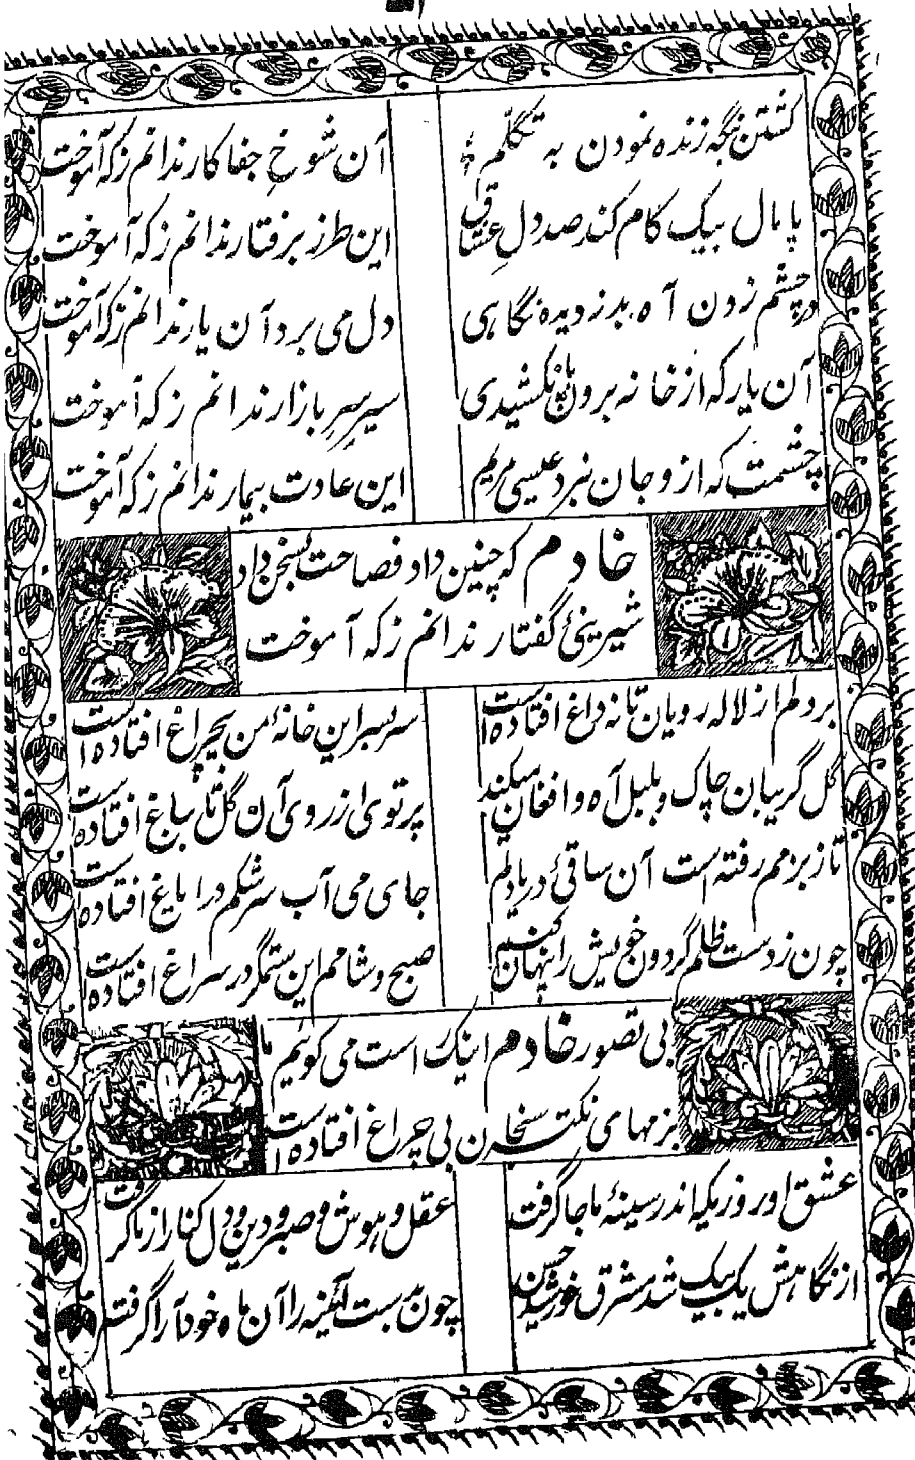 کشتن نبگه زنده نمودن به تکلّم
آن شوخِ جفا کار ندانم ز که آموخت
پامال بیک گام کند صد دلِ عشاق
این طرز برفتار ندانم ز که آموخت
در چشم زدن آه بدزدیده نگاهی
دل می برد آن یار ندانم ز که آموخت
آن یار که از خانه برون پا نکشیدی
سیرِ سرِ بازار ندانم ز که آموخت
چشمت که ازو جان نبرد عیسی مریم
این عادت بیمار ندانم ز که آموخت
خادم که چنین داد فصاحت بسخن داد
شیرینیٔ گفتار ندانم ز که آموخت
بر دلم از لاله رویان تا نه داغ افتاده است
سر بسر این خانهٔ من بیچراغ افتاده است
گل گریبان چاک و بلبل آه و افغان میکند
پرتوی از روی آن گل تا بباغ افتاده است
تا ز بزمم رفته است آن ساقیٔ دریا دلم
جای می آب سرشکم در ایاغ افتاده است
چون ز دست ظلم گردون خویش را پنهان کنیم
صبح و شامم این ستمگر در سراغ افتاده است
بی تصور خادم اینک است می گوئیم ما
بزمهای نکته سنجان بی چراغ افتاده است
عشق او روزیکه اندر سینهٔ ما جا گرفت
عقل و هوش و صبر و دین و دل کنار از ما گرفت
از نگاهش یک بیک شد مشرق خورشید حسن
چون بدست آئینه را آن ماه خود آرا گرفته